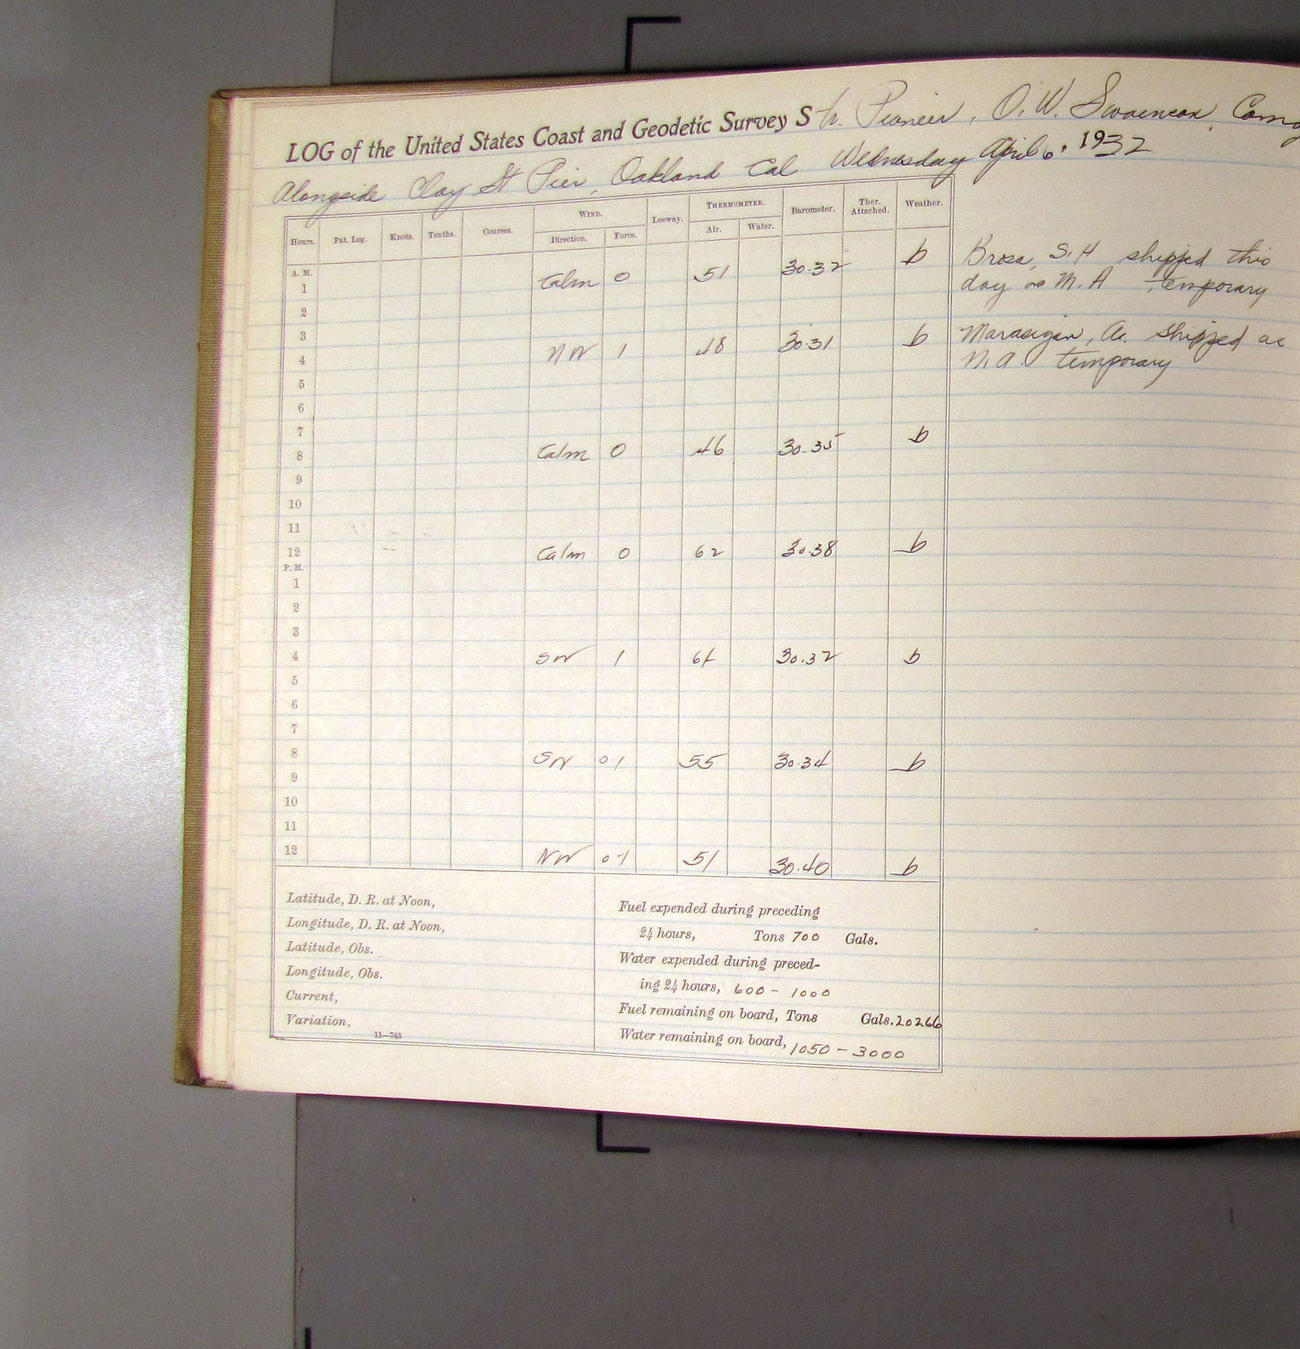 LOG of the United States Coast and Geodetic Survey Str. Pioneer, O. W. Swainson, Comdg
Alongside Clay St Pier, Oakland Cal Wednesday April 6, 1932
Hours. Pat. Log. Knots. Tenths. Courses. WIND. Direction. Force. Leeway. THERMOMETER. Air. Water. Barometer. Ther. Attached. Weather.
A. M.
1 Calm 0 51 30.32 b
2
3
4 NW 1 48 30.31 b
5
6
7
8 Calm 0 46 30.35 b
9
10
11
12 Calm 0 62 30.38 b
P. M.
1
2
3
4 SW 1 64 30.32 b
5
6
7
8 SW 01 55 30.34 b
9
10
11
12 NW 0-1 51 30.40 b
S.H shipped this
day as M.A temporary
Marasigan, A. shipped as
M.A. temporary
Latitude, D. R. at Noon,
Longitude, D. R. at Noon,
Latitude, Obs.
Longitude, Obs.
Current,
Variation,
11—743
Fuel expended during preceding
24 hours, Tons 700 Gals.
Water expended during preced-
ing 24 hours, 600 - 1000
Fuel remaining on board, Tons Gals. 20266
Water remaining on board, 1050 - 3000